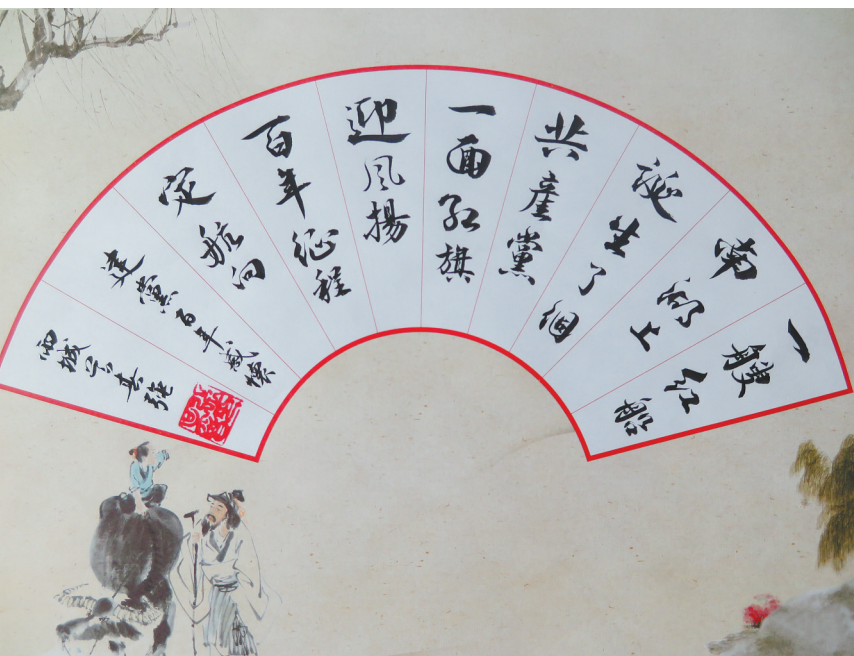 一艘红船
南湖上
诞生了個
共產黨
一面红旗
迎风揚
百年征程
定航向
建黨百年感懷
西城